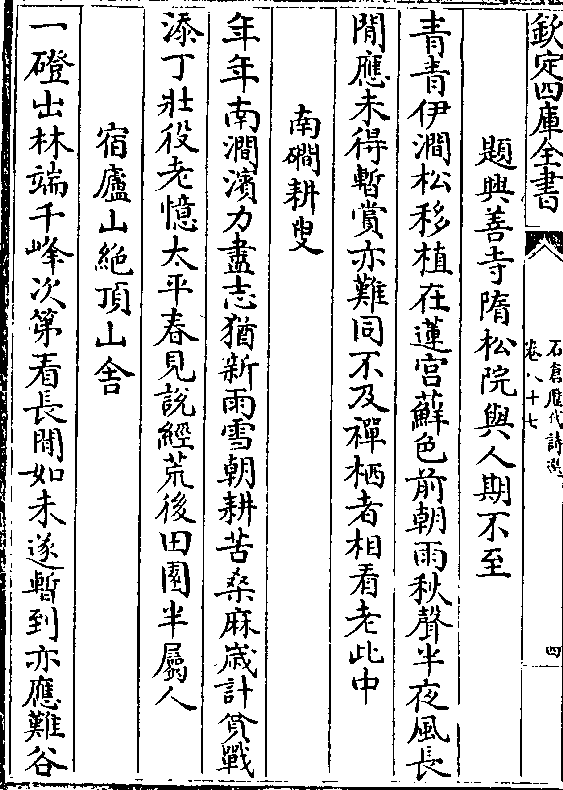 欽定四庫全書
石倉歷代詩選
卷八十七
四
題興善寺隋松院與人期不至
青青伊澗松移植在蓮宮蘚色前朝雨秋聲半夜風長
閒應未得暫賞亦難同不及禪栖者相看老此中
南磵耕叟
年年南澗濱力盡志猶新雨雪朝耕苦桑麻歲計貧戰
添丁壯役老憶太平春見說經荒後田園半屬人
宿廬山絶頂山舍
一磴出林端千峰次第看長閒如未遂暫到亦應難谷